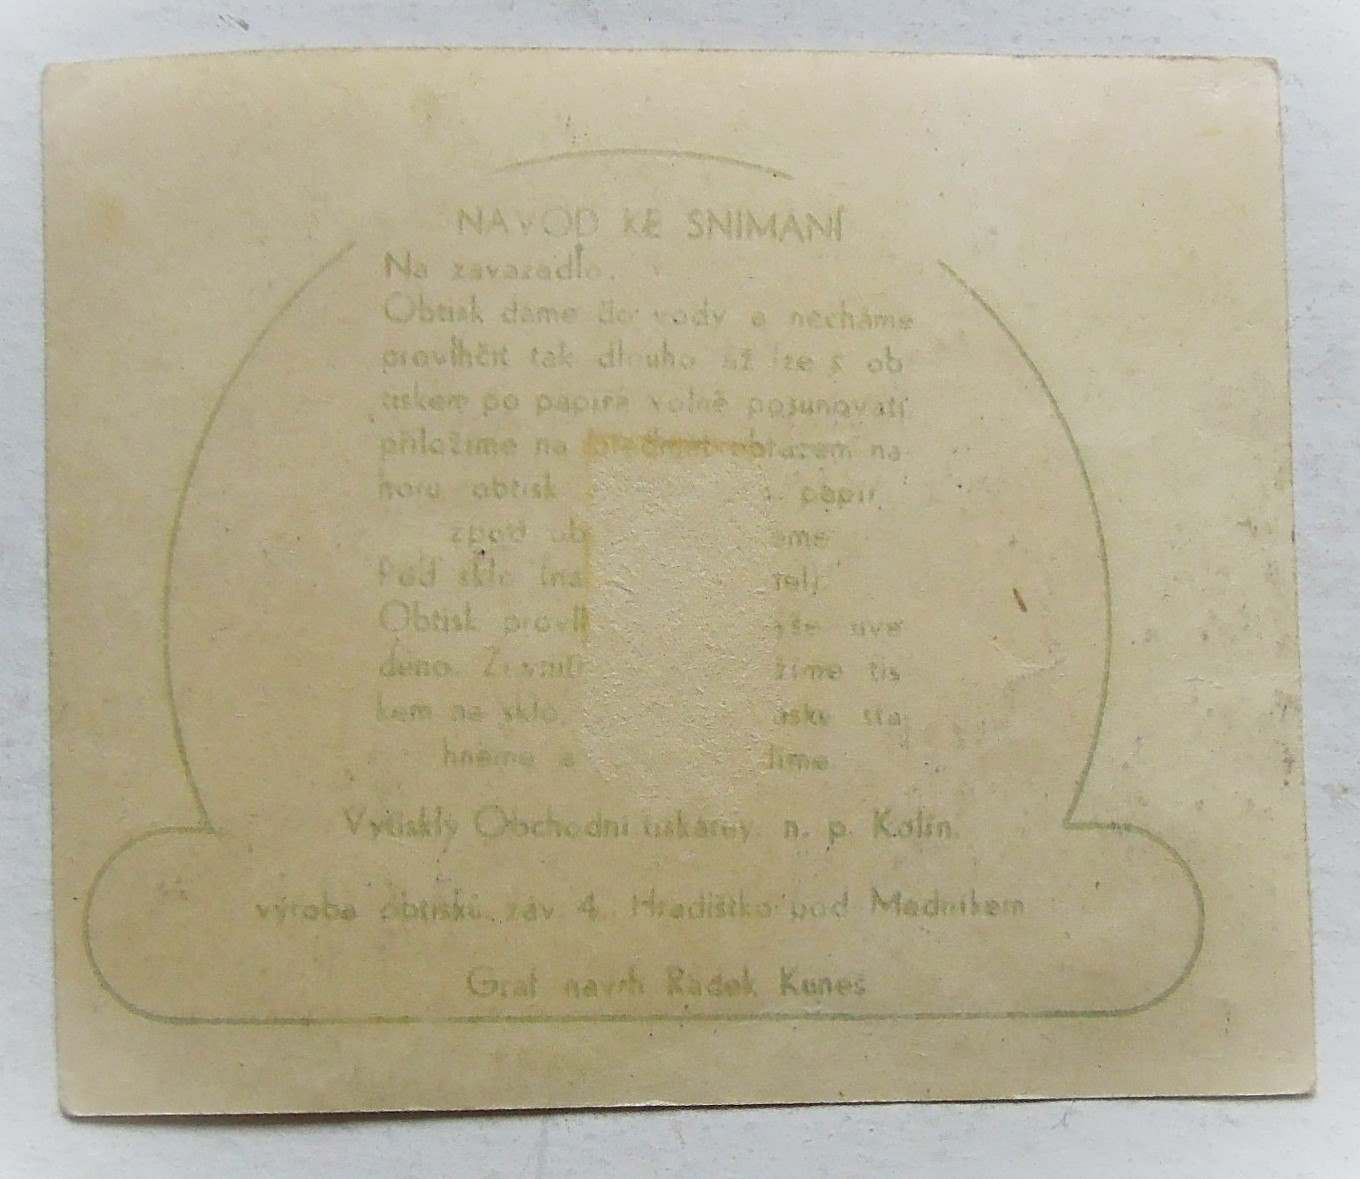 NÁVOD KE SNÍMÁNÍ
Na zavazadlo.
Obtisk dáme do vody a necháme
provlhčit tak dlouho až lze s ob
tiskem po papíře volně posunovati
přiložíme na předmět obrazem na
horu obtisk papír
zpod
Pod sklo
Obtisk uve
deno. tis
kem na sklo.
hneme a
Vytiskly Obchodní tiskárny. n. p. Kolín.
výroba obtisků. záv 4. Hradištko pod Medníkem
Graf návrh Radek Kuneš